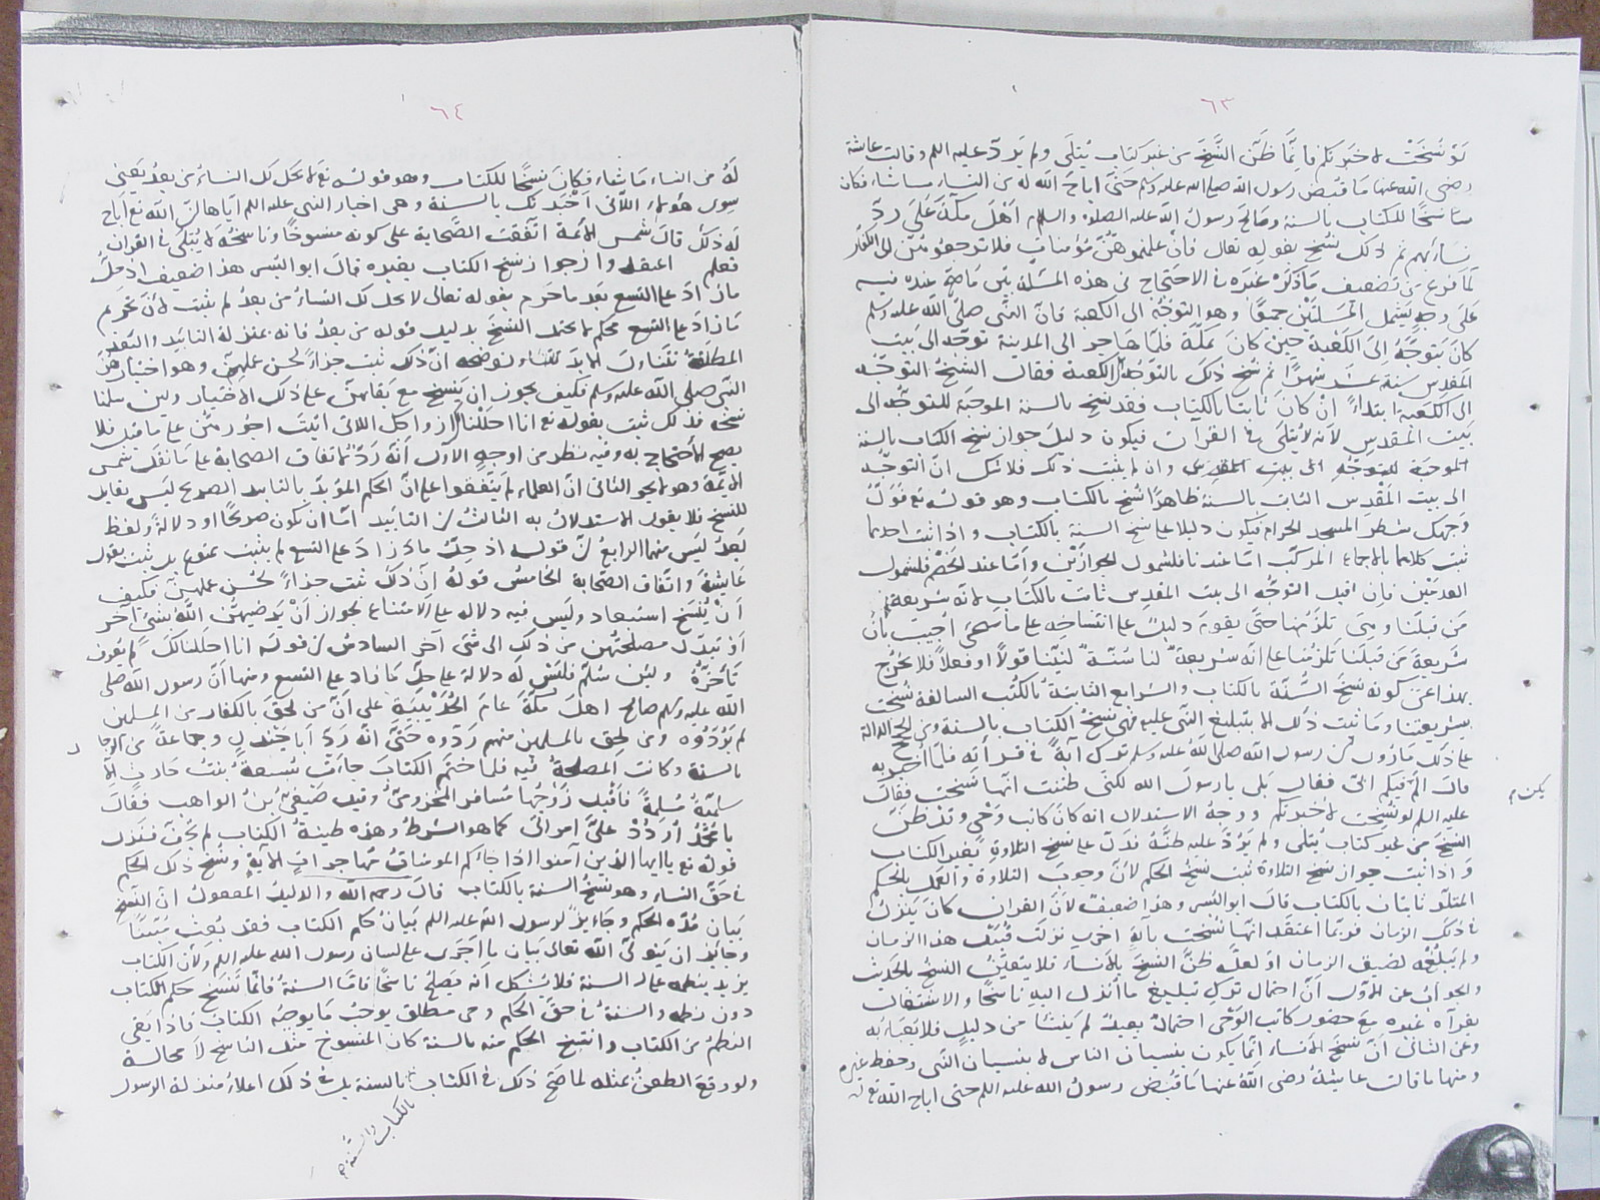 ٦٣
لو نسخت لاخبرتكم فانما ظن النسخ من غير كتاب يتلى ولم يرد عليه السلم وقالت عائشة
رضي الله عنها ما قبض رسول الله صلى الله عليه وسلم حتى اباح الله له من النساء ما شاء فكان
نسخا للكتاب بالسنة وصالح رسول الله عليه الصلوة والسلام اهل مكة على رد
نسائهم ثم ذلك نسخ بقوله تعالى فان علمتموهن مؤمنات فلا ترجعوهن الى الكفار
لما فرغ من تضعيف ما ذكره غيره في الاحتجاج في هذه المسئلة بين ما صح عنده فيه
على وجه يشمل المسئلتين جميعا وهو التوجه الى الكعبة فان النبي صلى الله عليه وسلم
كان يتوجه الى الكعبة حين كان بمكة فلما هاجر الى المدينة توجه الى بيت
المقدس ستة عشر شهرا ثم نسخ ذلك بالتوجه الى الكعبة فقال الشيخ التوجه
الى الكعبة ابتداء ان كان ثابتا بالكتاب فقد نسخ بالسنة الموجبة للتوجه الى
بيت المقدس لانه لا يتلى في القرآن فيكون دليل جواز نسخ الكتاب بالسنة
الموجبة للتوجه الى بيت المقدس وان لم يثبت ذلك فلا شك ان التوجه
الى بيت المقدس الثابت بالسنة ظاهرا نسخ بالكتاب وهو قوله تع فول
وجهك شطر المسجد الحرام فيكون دليلا على نسخ السنة بالكتاب واذا ثبت احدهما
ثبت كلاهما بالاجماع المركب اما عندنا فلشمول الجوازين واما عند الخصم فلشمول
العدمين فان قيل التوجه الى بيت المقدس ثابت بالكتاب لانه شريعة
من قبلنا وهي تلزمنا حتى يقوم دليل على انتساخه على ما سيجئ اجيب بان
شريعة من قبلنا تلزمنا على انه شريعة لنا سنة نبينا قولا او فعلا فلا يخرج
بهذا عن كونه نسخ السنة بالكتاب والشرايع الثابتة بالكتب السالفة نسخت
بشريعتنا وما ثبت ذلك الا بتبليغ النبي عليه فهي نسخ الكتاب بالسنة ومن الحجج الدالة
على ذلك ما روى ان رسول الله صلى الله عليه وسلم ترك آية في قرأته فلما اخبر به
قال الم فيكم ابي فقال بلى يا رسول الله لكني ظننت انها نسخت فقال
يكن م
عليه السلم لو نسخت لاخبرتكم ووجه الاستدلال انه كان كاتب وحي وقد ظن
النسخ من غير كتاب يتلى ولم يرد عليه ظنه فدل على نسخ التلاوة بغير الكتاب
واذا ثبت جواز نسخ التلاوة ثبت نسخ الحكم لان وجوب التلاوة والعمل بالحكم
المتلو ثابتان بالكتاب قال ابو اليسر وهذا ضعيف لان القران كان ينزل
في ذلك الزمان فربما اعتقد انها نسخت بآية اخرى نزلت قبيل هذا الزمان
ولم يبلغه لضيق الزمان او لعله ظن النسخ بالانساء فلا يتعين النسخ بالحديث
والجواب عن الاول ان احتمال ترك تبليغ ما انزل اليه ناسخا والاشتغال
بقرآة غيره مع حضور كاتب الوحي احتمال بعيد لم ينشأ من دليل فلا يعبأ به
وعن الثاني ان نسخ الانساء انما يكون بنسيان الناس لا بنسيان النبي وحفظ غيره
ومنها ما قالت عايشة رضي الله عنها ما قبض رسول الله عليه السلم حتى اباح الله تع
٦٤
له من النساء ما شاء فكان نسخا للكتاب وهو قوله تع لا يحل لك النساء من بعد يعني
سوى هؤلاء اللاتي اخترنك بالسنة وهي اخبار النبي عليه السلم اياها ان الله تع اباح
له ذلك قال شمس الائمة اتفقت الصحابة على كونه منسوخا وناسخه لا يتلى في القران
فعلم جواز نسخ الكتاب بغيره قال ابو اليسر هذا ضعيف اذ حل
ما زاد على التسع بعد ما حرم بقوله تعالى لا يحل لك النساء من بعد لم يثبت لان تحريم
ما زاد على التسع محكم لا يحتمل النسخ بدليل قوله من بعد فانه بمنزلة التابيد
المطلقة تتناول الابد يوضحه ان ذلك ثبت جزاء لحسن عملهن وهو اختيارهن
النبي صلى الله عليه وسلم فكيف يجوز ان ينسخ مع بقائهن على ذلك الاختيار ولئن سلمنا
نسخه فذلك ثبت بقوله تع انا احللنا لك ازواجك اللاتي اتيت اجورهن على ما قيل فلا
يصح الاحتجاج به وفيه نظر من اوجه الاول انه رد لاتفاق الصحابة على ما نقل شمس
الائمة وهو لا يجوز الثاني ان العلماء لم يتفقوا على ان الحكم المؤبد بالتابيد الصريح ليس بقابل
للنسخ فلا يقوى الاستدلال به الثالث ان التابيد اما ان يكون صريحا او دلالة ولفظ
بعد ليس منهما الرابع ان قوله اذ حل ما زاد على التسع لم يثبت ممنوع بل ثبت بقول
عايشة واتفاق الصحابة الخامس قوله ان ذلك ثبت جزاء لحسن عملهن فكيف
ان ينسخ استبعاد وليس فيه دلالة على الامتناع لجواز ان يرضيهن الله بشئ آخر
او تبدل مصلحتهن من ذلك الى شئ آخر السادس ان قوله انا احللنا لك لم يعرف
تأخره ولئن سلم فليس له دلالة على حل ما زاد على التسع ومنها ان رسول الله صلى
الله عليه وسلم صالح اهل مكة عام الحديبية على ان من لحق بالكفار من المسلمين
لم يردوه ومن لحق بالمسلمين منهم ردوه حتى انه رد ابا جندل وجماعة من الرجال
بالسنة وكانت المصلحة فيه فلما ختم الكتاب جاءت سبيعة بنت حارث الا
سلمية مسلمة فاقبل زوجها مسافر المخزومي وقيل صيفي ابن الواهب فقال
يا محمد اردد على امراتي كما هو الشرط وهذه طينة الكتاب لم تجف فنزل
قوله تع يا ايها الذين آمنوا اذا جاءكم المومنات مهاجرات الآية ونسخ ذلك الحكم
في حق النساء وهو نسخ السنة بالكتاب قال رحمه الله والدليل المعقول ان النسخ
بيان مدة الحكم وجايز لرسول الله عليه السلم بيان حكم الكتاب فقد بعث مبينا
وجائز ان يتولى الله تعالى بيان ما اجرى على لسان رسول الله عليه السلم ولان الكتاب
يزيد بنظمه على السنة فلا يشكل انه يصلح ناسخا فاما السنة فانما تنسخ حكم الكتاب
دون نظمه والسنة في حق الحكم وحي مطلق يوجب ما يوجبه الكتاب فاذا بقي
النظم من الكتاب وانتسخ الحكم منه بالسنة كان المنسوخ مثل الناسخ لا محالة
ولو وقع الطعن بمثله لما صح ذلك في الكتاب بالسنة بل في ذلك اعلاء منزلة الرسول
بالكتاب والسنة م